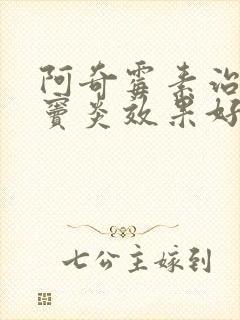 阿奇霉素治
窦炎效果好
七公主嫁到